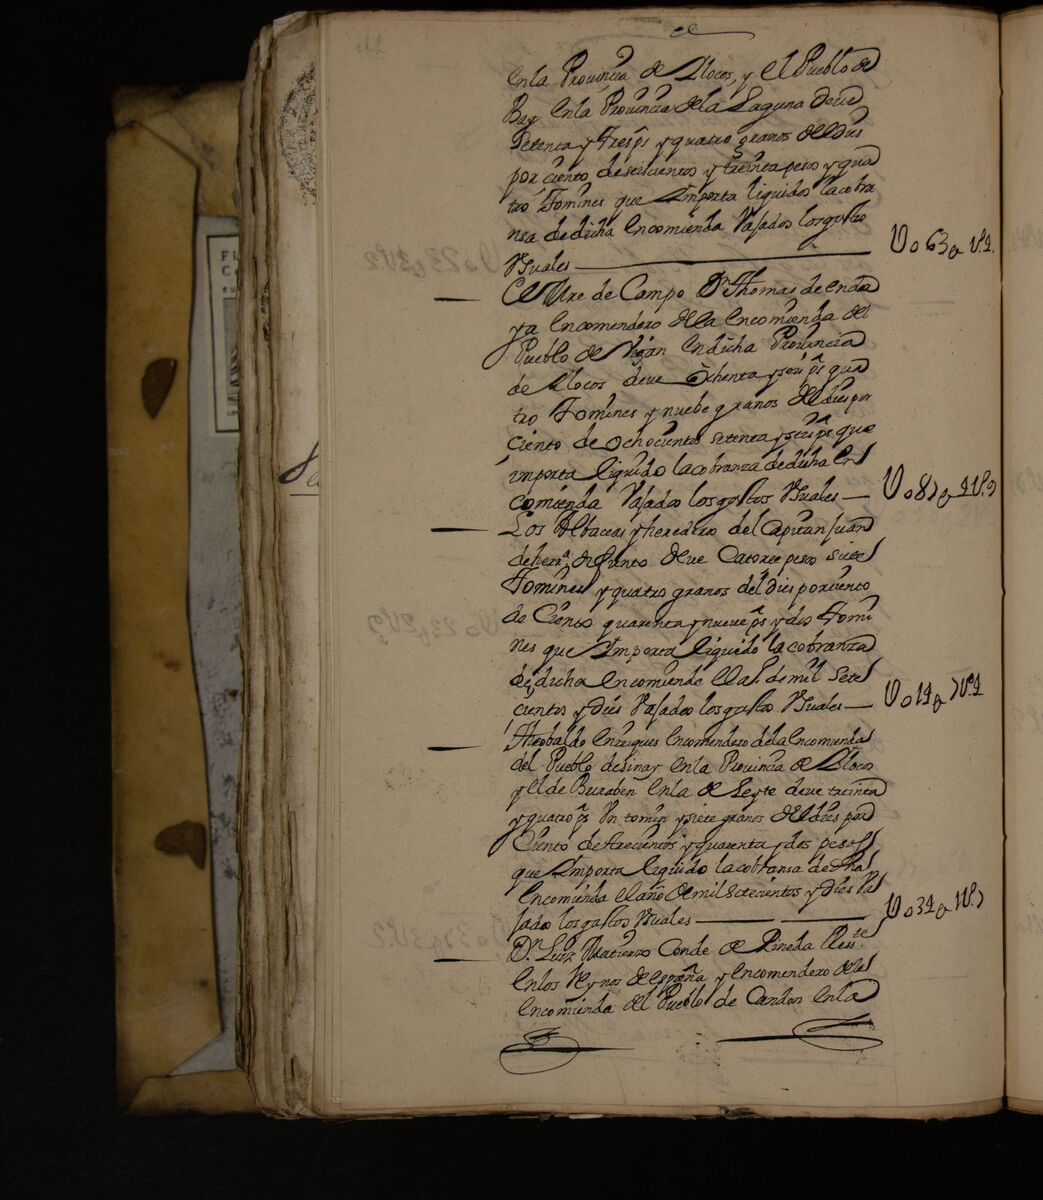 en la Provinçia de Ylocos, y el Pueblo de
Bay en la Provinçia de la Laguna deve
Setenta y tres ps y quatro granos del dies
por ciento de seiscientos y treinta pesos y qua
tro tomines que Ymporta liquidos la cobra
nsa de dicha encomienda Vajados los gastos
Vsuales
U o 63 o U 4.
El Mre de Campo Dn Thomas de enda
ya encomendero de la encomienda del
Pueblo de Vigan en dicha Provinçia
de Ylocos deve Ochenta y seis ps qua
tro Tomines y nuebe granos del dies por
ciento de ochocientos setenta y seis ps que
importa liquido la cobranza de dicha En
comienda Vajados los gastos Vsuales
U o 87 o 4 U 9
Los Albaceas y herederos del Capitan Juan
de herra difunto deve Catorce pesos siete
Tomines y quatro granos del dies por ciento
de Ciento quarenta y nueve ps y dos Tomi
nes que Ymporta liquido la cobranza
de dicha encomienda el as de mil sete
cientos y dies Vajados los gastos Vsuales
U o 14 o 7 U 4
Theobaldo enriques encomendero de la encomienda
del Pueblo de sinay en la Provincia de Ylocos
y el de Buraben en la de Leyte deve treinta
y quatro ps Vn tomin y siete granos del dies por
Ciento de trecientos y quarenta y dos pesos
que Ymporta liquido la cobransa de dha
encomienda el año de mil setecientos y dies Va
jados los gastos Vsuales
U o 34 o 1 U 7
Dn Luis Matienzo Conde de Pineda Resste
en los Reynos de españa y encomendero de la
encomienda del Pueblo de Candon en la